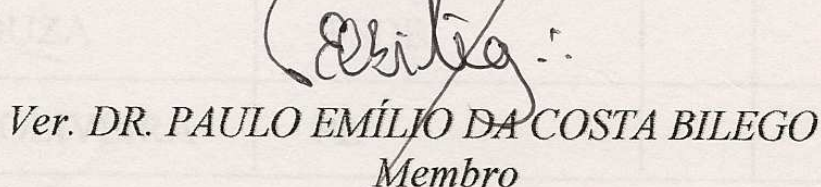 Ver. DR. PAULO EMÍLIO DA COSTA BILEGO
Membro